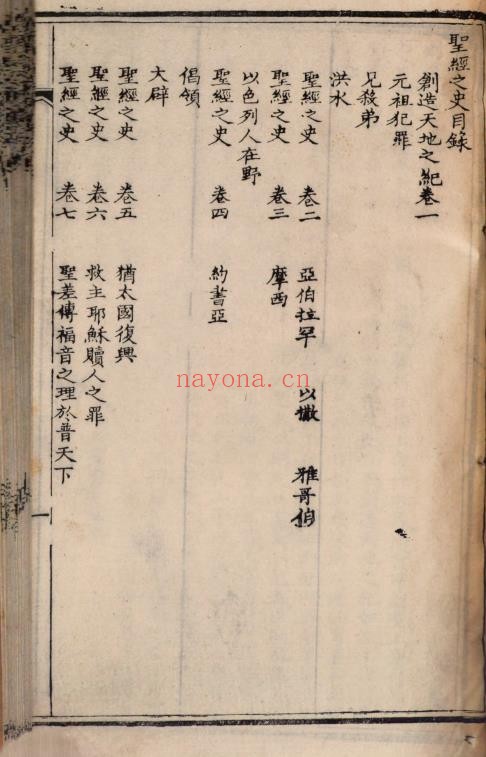 聖經之史目錄
創造天地之紀卷一
元祖犯罪
兄殺弟
洪水
聖經之史 卷二 亞伯拉罕 以撒 雅哥伯
聖經之史 卷三 摩西
以色列人在野
聖經之史 卷四 約書亞
倡領
大辟
聖經之史 卷五 猶太國復興
聖經之史 卷六 救主耶穌贖人之罪
聖經之史 卷七 聖差傳福音之理於普天下
一
nayona.cn